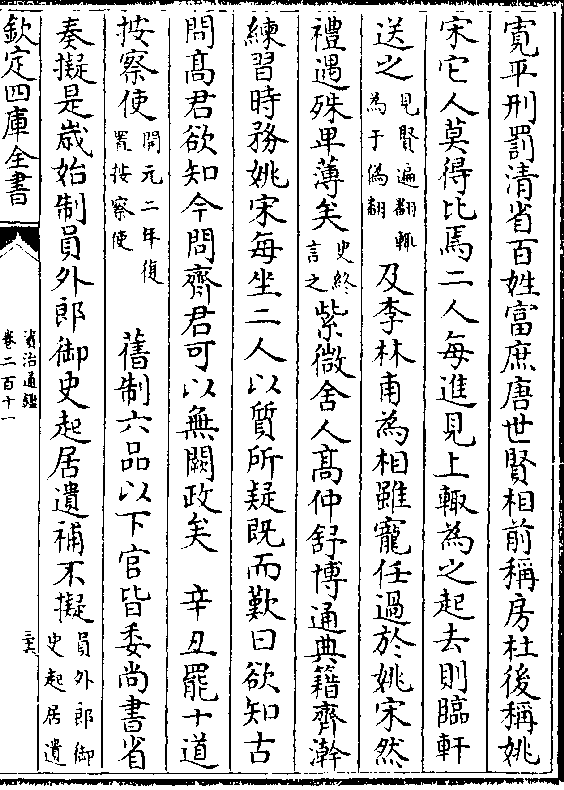 寛平刑罰清省百姓富庶唐世賢相前稱房杜後稱姚
宋它人莫得比焉二人每進見上輒為之起去則臨軒
送之見賢遍翻輒為于偽翻及李林甫為相雖寵任過於姚宋然
禮遇殊卑薄矣史終言之紫微舍人高仲舒博通典籍齊澣
練習時務姚宋每坐二人以質所疑既而歎曰欲知古
問高君欲知今問齊君可以無闕政矣　辛丑罷十道
按察使開元二年復置按察使　舊制六品以下官皆委尚書省
奏擬是歲始制員外郎御史起居遺補不擬員外郎御史起居遺
欽定四庫全書
資治通鑑
卷二百十一